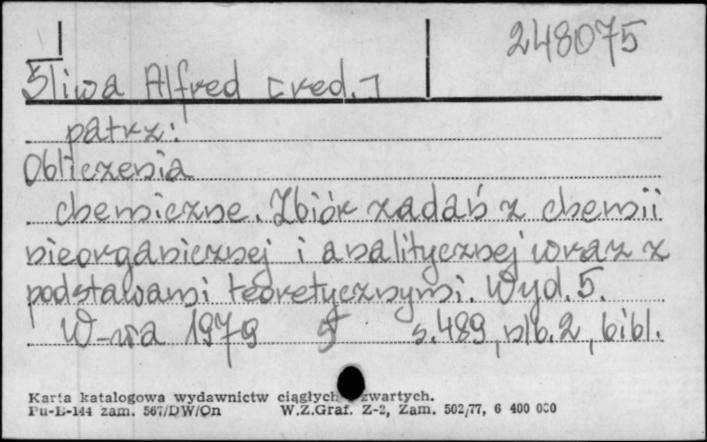 248075
Śliwa Alfred [red.]
patrz:
Obliczenia
chemiczne. Zbiór zadań z chemii
nieorganicznej i analitycznej wraz z
podstawami teoretycznymi. Wyd. 5.
W-wa 1979 s. 489, nlb. 2, bibl.
Karta katalogowa wydawnictw ciągłych zwartych.
Pu-B-144 zam. 567/DW/On W.Z.Graf. Z-2, Zam. 502/77, 6 400 000